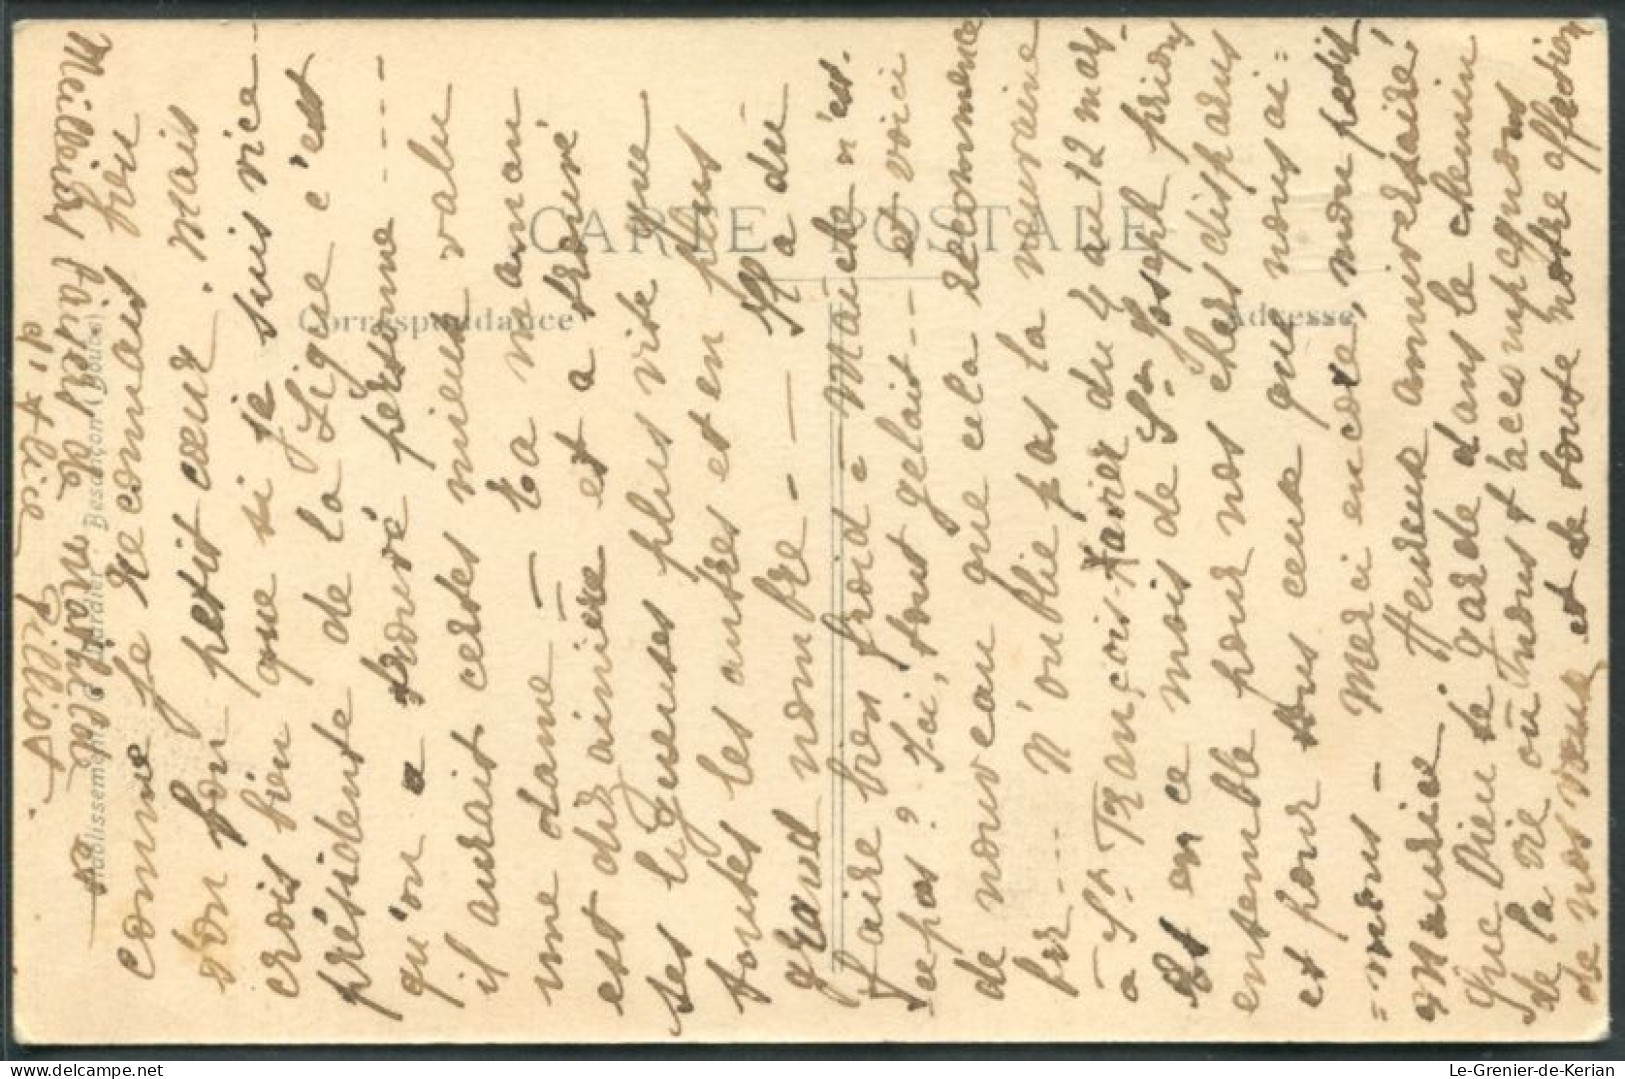 comme je reconnais bien
ton bon petit cœur. Mais
crois bien que si je suis vice-
présidente de la Ligue c'est
qu'on a trouvé personne ----
il aurait certes mieux valu
une dame - Ta maman
est dizainière et a trouvé
ses ligueuses plus vite que
toutes les autres et en plus
grand nombre - - Il a dû
faire bien froid à Maîche n'est-
ce pas? Ici, tout gelait -- et voici
de nouveau que cela recommence
br... N'oublie pas la neuvaine
à St François-Xavier du 4 au 12 mars -
Et en ce mois de St Joseph prions
ensemble pour nos chers disparus
et pour tous ceux que nous ai=
=mons - Merci encore, mon petit
Maurice. Heureux anniversaire!
Que Dieu te garde dans le chemin
de la vie où nous t'accompagnons
de nos vœux et de toute notre affection
Meilleurs baisers de Mathilde et
d'Alice Pilliot.
CARTE POSTALE
Correspondance
Adresse
Etablissements C. Lardier - Besançon (Doubs)
Le-Grenier-de-Kerian